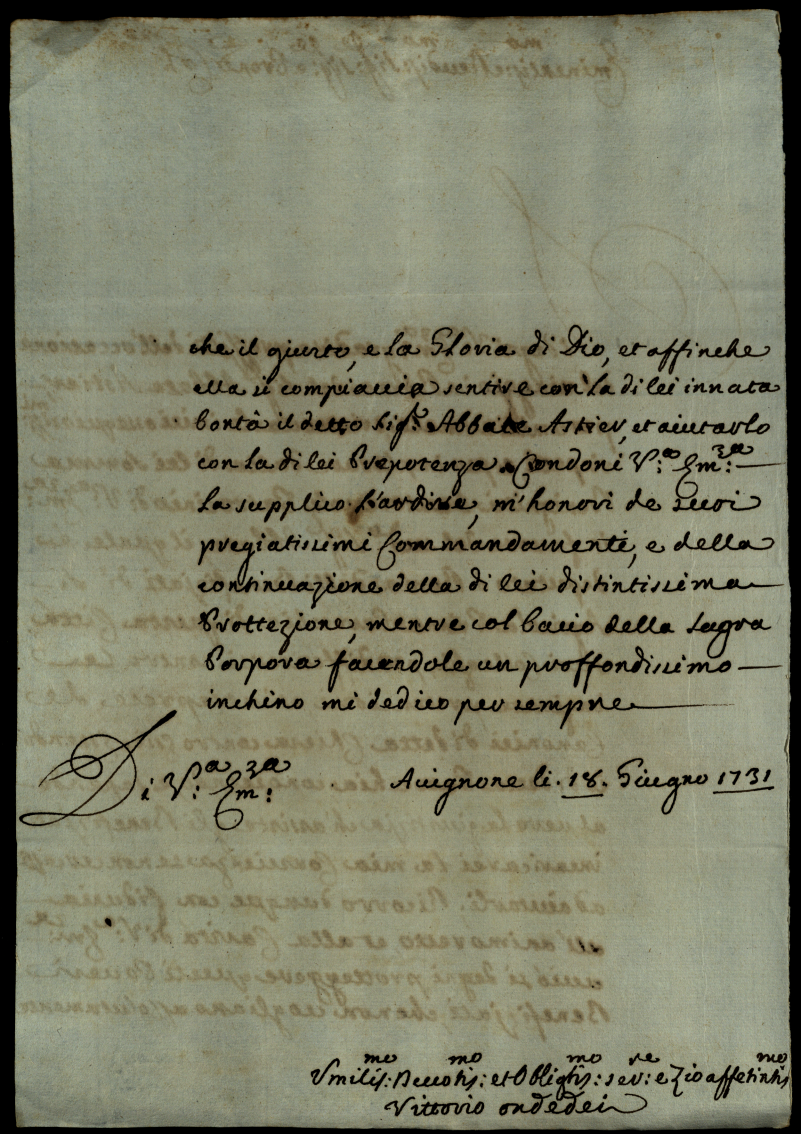 che il giusto, e la Gloria di Dio, et affinche
ella si compiaccia sentire con la di lei innata
bontà il detto Sig.re Abbate Astier, et aiutarlo
con la di lei Prepotenza Condoni V.a Em.za
La supplico l'ardire, m'honori de suoi
pregiatissimi Commandamenti, e della
continuazione della di lei distintissima
Prottezione, mentre col bacio della Sagra
Porpora facendole un proffondissimo
inchino mi dedico per sempre
Di V.a Em.za Avignone li. 18. Giugno 1731
Vmilis:mo Devotis:mo et Obligtis:mo ser:re e Zio affetintis:mo
Vittorio ondedei